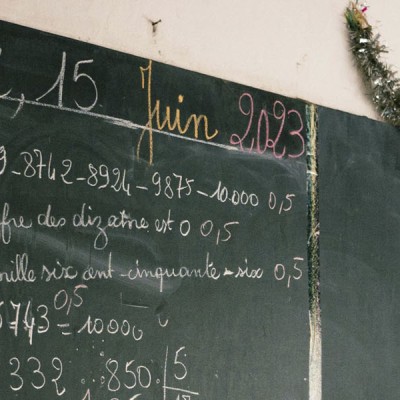 15 Juin 2023
-8742-8924-9875-10.000 0,5
fre des dizaine est 0 0,5
mille six cent-cinquante-six 0,5
0,5
5743 = 10000
332 850 5